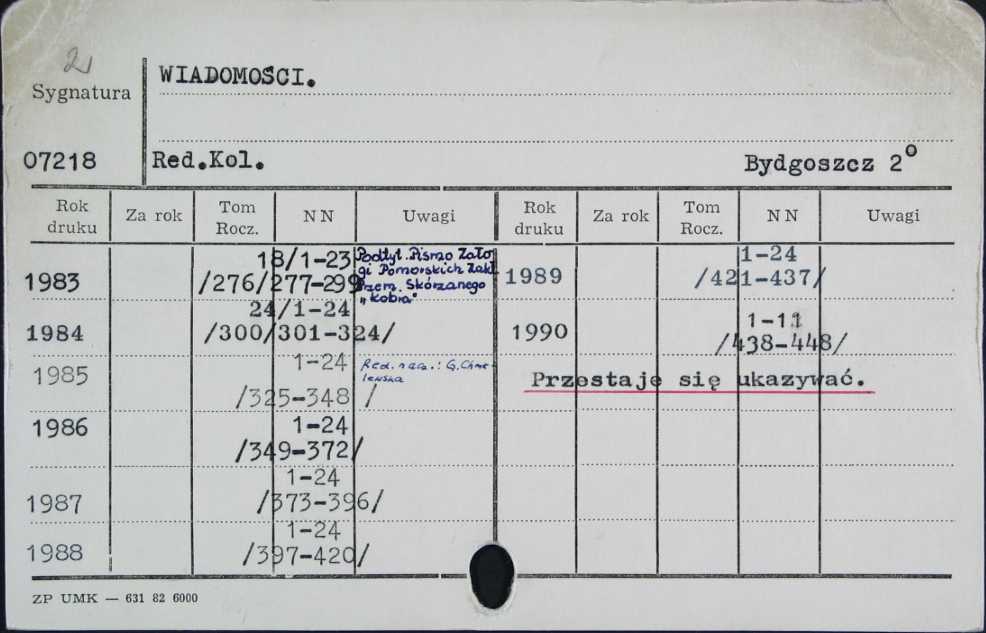 2
Sygnatura
WIADOMOŚCI.
07218
Red.Kol.
Bydgoszcz 2°
Rok druku
Za rok
Tom Rocz.
NN
Uwagi
Rok druku
Za rok
Tom Rocz.
NN
Uwagi
1983
18/1-23
/276/277-299
Podtyt. Pismo Zało
gi Pomorskich Zakł.
Przem. Skórzanego
"Kobra"
1984
24/1-24
/300/301-324/
1985
1-24
/325-348 /
Red. nacz.: G. Chme-
lewska
1986
1-24
/349-372/
1987
1-24
/373-396/
1988
1-24
/397-420/
1989
1-24
/421-437/
1990
1-11
/438-448/
Przestaje się ukazywać.
ZP UMK — 631 82 6000